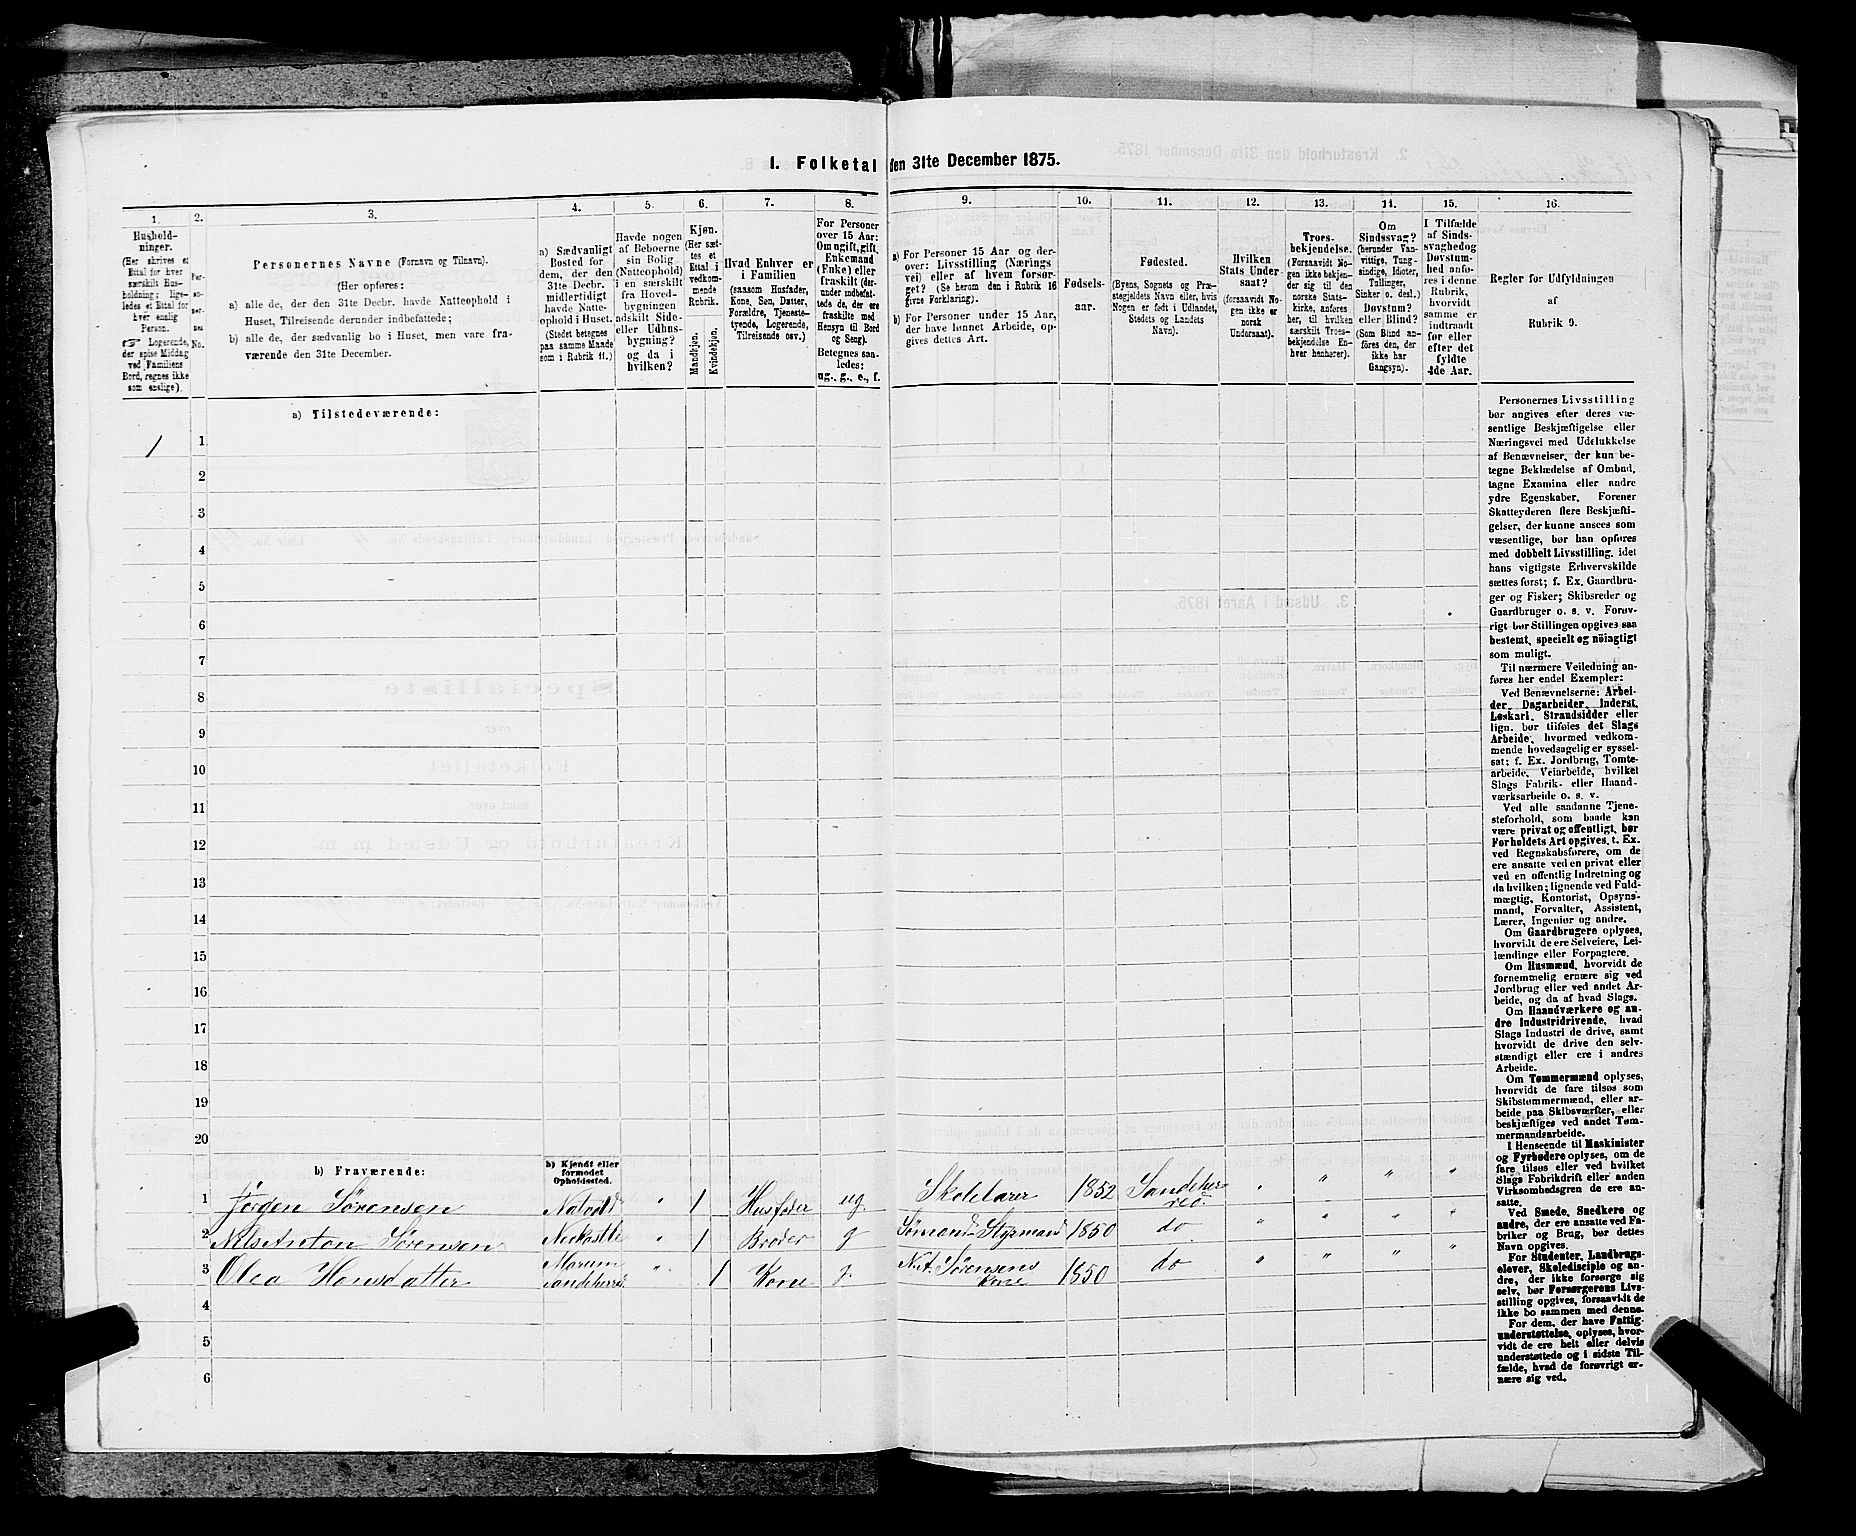 1. Folketal den 31te December 1875.
1.
2.
3.
4.
5.
6.
7.
8.
9.
10.
11.
12.
13.
14.
15.
16.
Hushold-
ninger.
(Her skrives et
Ettal for hver
særskilt Hus-
holdning; lige-
ledes et Ettal for
hver enslig
Person.
☞ Logerende,
der spise Middag
ved Familiens
Bord, regnes ikke
som enslige).
Per-
so-
ner-
nes
No.
Personernes Navne (Fornavn og Tilnavn).
(Her opføres:
a) alle de, der den 31te Decbr. havde Natteophold i
Huset, Tilreisende derunder indbefattede;
b) alle de, der sædvanlig bo i Huset, men vare fra-
værende den 31te December.
a) Sædvanligt
Bosted for
dem, der den
31te Decbr.
midlertidigt
havde Natte-
ophold i Huset.
(Stedet betegnes
paa samme Maade
som i Rubrik 11.)
Havde nogen
af Beboerne
sin Bolig
(Natteophold)
i en særskilt
fra Hoved-
bygningen
adskilt Side-
eller Udhus-
bygning?
og da i
hvilken?
Kjøn.
(Her sæt-
tes et
Ettal i
vedkom-
mende
Rubrik.
Mandkjøn.
Kvindekjøn.
Hvad Enhver er
i Familien
(saasom Husfader,
Kone, Søn, Datter,
Forældre, Tjeneste-
tyende, Logerende,
Tilreisende osv.)
For Personer
over 15 Aar:
Om ugift, gift,
Enkemand
(Enke) eller
fraskilt (der-
under indbefat-
tede de, der ere
fraskilte med
Hensyn til Bord
og Seng).
Betegnes saa-
ledes:
ug., g., e., f.
a) For Personer 15 Aar og der-
over: Livsstilling (Nærings
vei) eller af hvem forsør-
get? (Se herom den i Rubrik 16
givne Forklaring).
b) For Personer under 15 Aar,
der have lønnet Arbeide, op-
gives dettes Art.
Fødsels-
aar.
Fødested.
(Byens, Sognets og Præ-
stegjeldets Navn eller, hvis
Nogen er født i Udlandet,
Stedets og Landets
Navn).
Hvilken
Stats Under-
saat?
(forsaavidt No-
gen ikke er
norsk
Undersaat).
Troes-
bekjendelse.
(Forsaavidt No-
gen ikke bekjen-
der sig til den
norske Stats-
kirke, anføres
her, til hvilken
særskilt Troes-
bekjendelse En-
hver henhører).
Om
Sindssvag?
(herunder Van-
vittige, Tung-
sindige, Idioter,
Tullinger,
Sinker o. desl.)
Døvstum?
eller Blind?
(Som Blind an-
føres den, der
ikke har
Gangsyn).
I Tilfælde
af Sinds-
svaghed og
Døvstum-
hed anfø-
res i denne
Rubrik,
hvorvidt
samme er
indtraadt
før eller
efter det
fyldte
4de Aar.
Regler for Udfyldningen
af
Rubrik 9.
a) Tilstedeværende:
1
1
2
3
4
5
6
7
8
9
10
11
12
13
14
15
16
17
18
19
20
b) Fraværende:
b) Kjendt eller
formodet
Opholdssted.
1 Jørgen Sørensen " 1 Husfader ug Skolelærer 1852 Sandeher-
red " " " "
2 Nils Anton Sørensen " 1 Broder g Sømand Styrmand 1850 do " " " "
3 Olea Hansdatter Marum
Sandeherred " 1 Kone g. N. A. Sørensens
Kone 1850 do " " " "
4
5
6
Personernes Livsstilling
bør angives efter deres væ-
sentlige Beskjæftigelse eller
Næringsvei med Udelukkelse
af Benævnelser, der kun be-
tegne Beklædelse af Ombud,
tagne Examina eller andre
ydre Egenskaber. Forener
Skatteyderen flere Beskjæfti-
gelser, der kunne ansees som
væsentlige, bør han opføres
med dobbelt Livsstilling, idet
hans vigtigste Erhvervskilde
sættes først; f. Ex. Gaardbru-
ger og Fisker; Skibsreder og
Gaardbruger o. s. v. Forøv-
rigt bør Stillingen opgives saa
bestemt, specielt og nöiagtigt
som muligt.
Til nærmere Veiledning an-
føres her endel Exempler:
Ved Benævnelserne: Arbei-
der, Dagarbeider, Inderst,
Løskarl, Strandsidder eller
lign. bør tilføies det Slags
Arbeide, hvormed vedkom-
mende hovedsagelig er syssel-
sat; f. Ex. Jordbrug, Tomte-
arbeide, Veiarbeide, hvilket
Slags Fabrik- eller Haand-
værksarbeide o. s. v.
Ved alle saadanne Tjene-
steforhold, som baade kan
være privat og offentligt, bør
Forholdets Art opgives, t. Ex.
ved Regnskabsførere, om de
ere ansatte ved en privat eller
ved en offentlig Indretning og
da hvilken; lignende ved Fuld-
mægtig, Kontorist, Opsyns-
mand, Forvalter, Assistent,
Lærer, Ingeniør og andre.
Om Gaardbrugere oplyses,
hvorvidt de ere Selveiere, Lei-
lændinge eller Forpagtere.
Om Husmænd, hvorvidt de
fornemmelig ernære sig ved
Jordbrug eller ved andet Ar-
beide, og da af hvad Slags.
Om Haandværkere og an-
dre Industridrivende, hvad
Slags Industri de drive, samt
hvorvidt de drive den selv-
stændigt eller ere i andres
Arbeide.
Om Tømmermænd oplyses,
hvorvidt de fare tilsøs som
Skibstømmermænd, eller ar-
beide paa Skibsværfter, eller
beskjæftiges ved andet Tøm-
mermandsarbeide.
I Henseende til Maskinister
og Fyrbødere oplyses, om de
fare tilsøs eller ved hvilket
Slags Fabrikdrift eller anden
Virksombedsgren de ere an-
satte.
Ved Smede, Snedkere og
andre, der ere ansatte ved Fa-
briker og Brug, bør dettes
Navn opgives.
For Studenter, Landbrugs-
elever, Skoledisciple og an-
dre, der ikke forsørge sig
selv, bør Forsørgerens Livs-
stilling opgives, forsaavidt de
ikke bo sammen med denne.
For dem, der have Fattig-
understøttelse, oplyses, hvor-
vidt de ere helt eller delvis
understøttede og i sidste Til-
fælde, hvad de forøvrigt er-
nære sig ved.